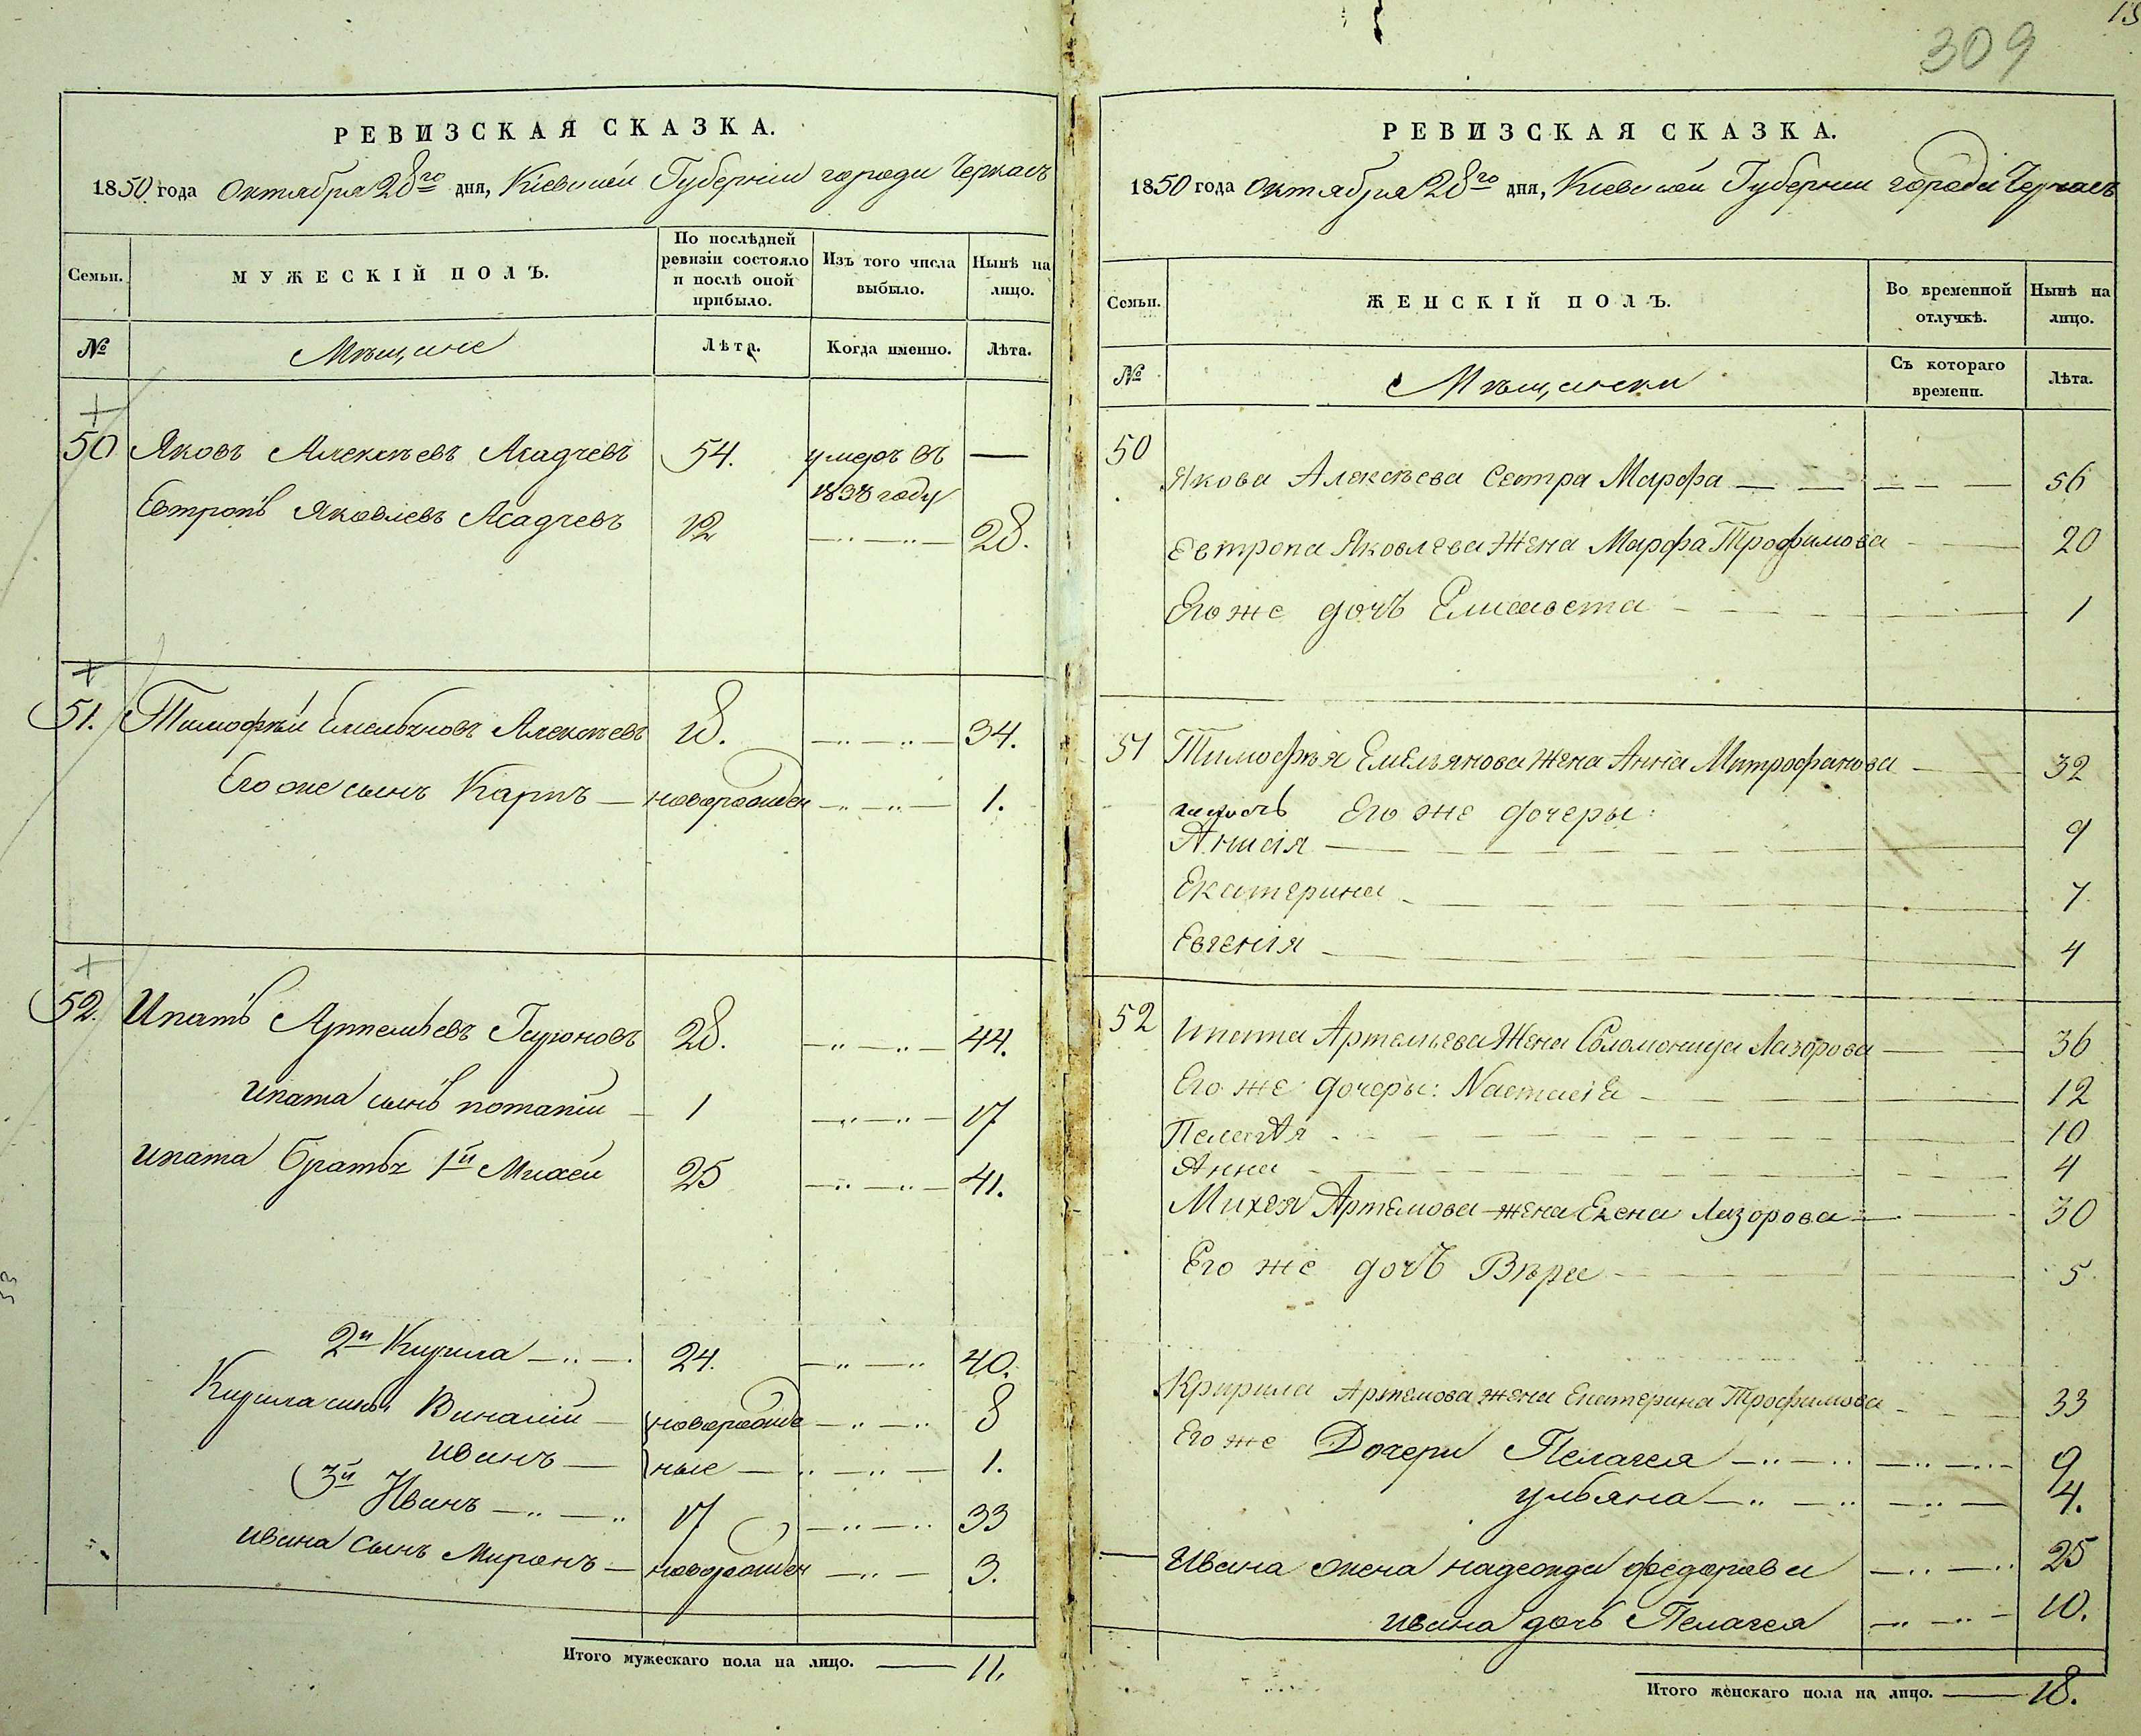 309
РЕВИЗСКАЯ СКАЗКА.
1850 года Октября 28го дня, Кіевской Губерніи города Черкасъ
Семьи.
МУЖЕСКІЙ ПОЛЪ.
По послѣдней ревизіи состояло и послѣ оной прибыло.
Изъ того числа выбыло.
Нынѣ на лицо.
№
Мѣщане
Лѣта.
Когда именно.
Лѣта.
50 Яковъ Алексѣевъ Асадчевъ 54. умеръ въ —
1838 году
Евтропъ Яковлевъ Асадчевъ 12 28.
51. Тимофѣй Емельяновъ Алексѣевъ 18. 34.
Его же сынъ Карпъ — новорожден 1.
52. Ипатъ Артемьевъ 28. 44.
Ипата сынъ потапій 1 17
Ипата братья 1й Михей 25 41.
2й Кирила 24. 40.
Кирила сыны новорожде 8
Иванъ — ные — 1.
3й Иванъ 17 33
Ивана сынъ Миронъ — новорожден 3.
Итого мужескаго пола на лицо. — 11.
РЕВИЗСКАЯ СКАЗКА.
1850 года Октября 28го дня, Кіевской Губерніи города Черкасъ
Семьи.
ЖЕНСКІЙ ПОЛЪ.
Во временной отлучкѣ.
Нынѣ на лицо.
№
Мѣщански
Съ котораго времени.
Лѣта.
50
Якова Алексѣева Сестра Марфа — 56
Евтропа Яковлева Жена Марфа Трофимова 20
Его же дочъ Елисавета 1
51 Тимофѣя Емельянова Жена Анна Митрофанова 32
Его же дочеры:
Анисія 9
Екатерина 7
Евгенія 4
52 Ипата Артемьева Жена Соломонида Лазорова 36
Его же дочеры: Настасія 12
Пелагія 10
Анна 4
Михея Артемова жена Елена Лазорова 30
Его же дочъ Вѣра 5
Кририла Артемова жена Екатерина Трофимова 33
Его же Дочери Пелагея 9
ульяна 4.
Ивана жена надежда федорова 25
Ивана дочъ Пелагея 10.
Итого женскаго пола на лицо. — 18.